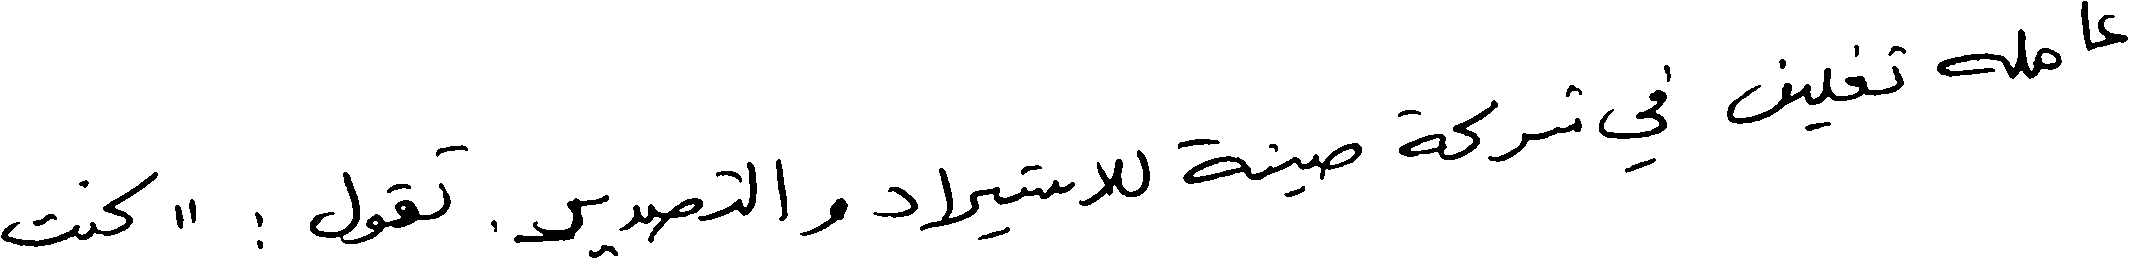 عامله تغليف في شركة صينة للاستيراد والتصدير. تقول : "كنت